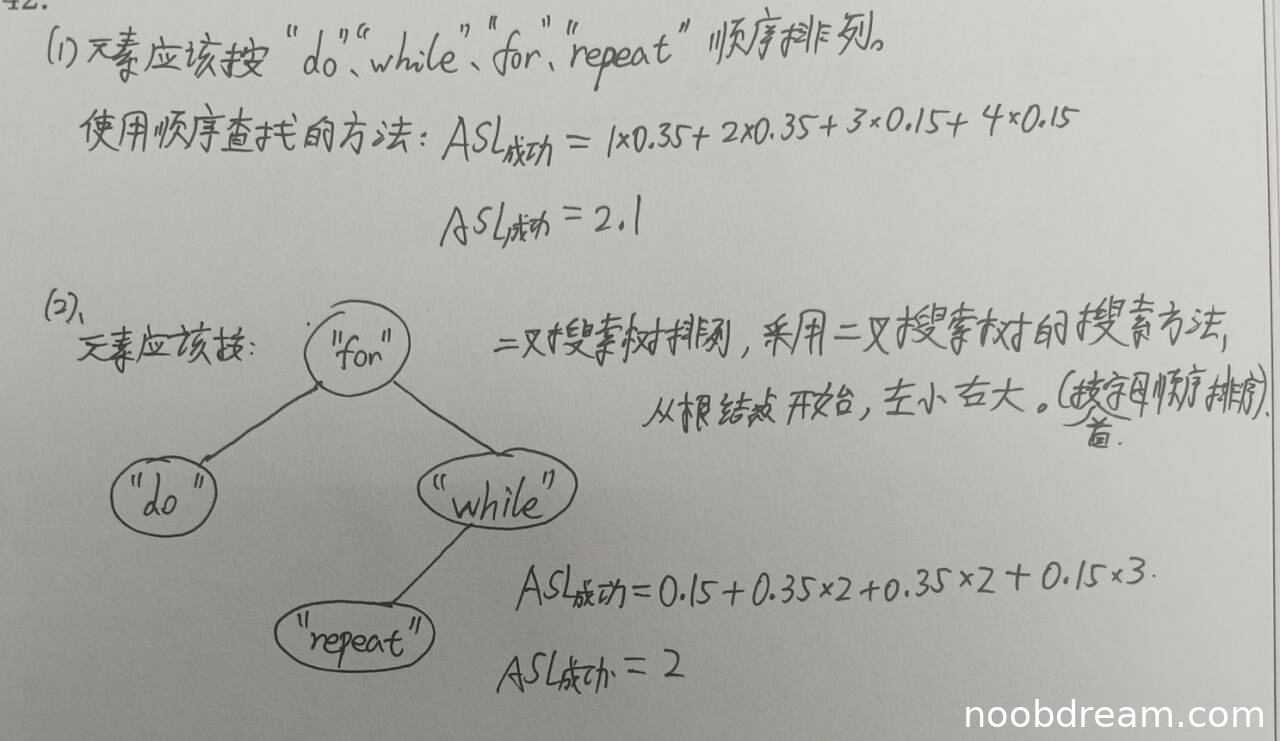 42.
(1) 元素应该按“do”、“while”、“for”、“repeat”顺序排列。
使用顺序查找的方法：ASL成功 = 1×0.35+2×0.35+3×0.15+4×0.15
ASL成功 = 2.1
(2)、
元素应该按：
“for”
二叉搜索树排列，采用二叉搜索树的搜索方法，
从根结点开始，左小右大。(按首字母顺序排序).
“do”
“while”
ASL成功=0.15+0.35×2+0.35×2+0.15×3.
“repeat”
ASL成功 = 2
noobdream.com